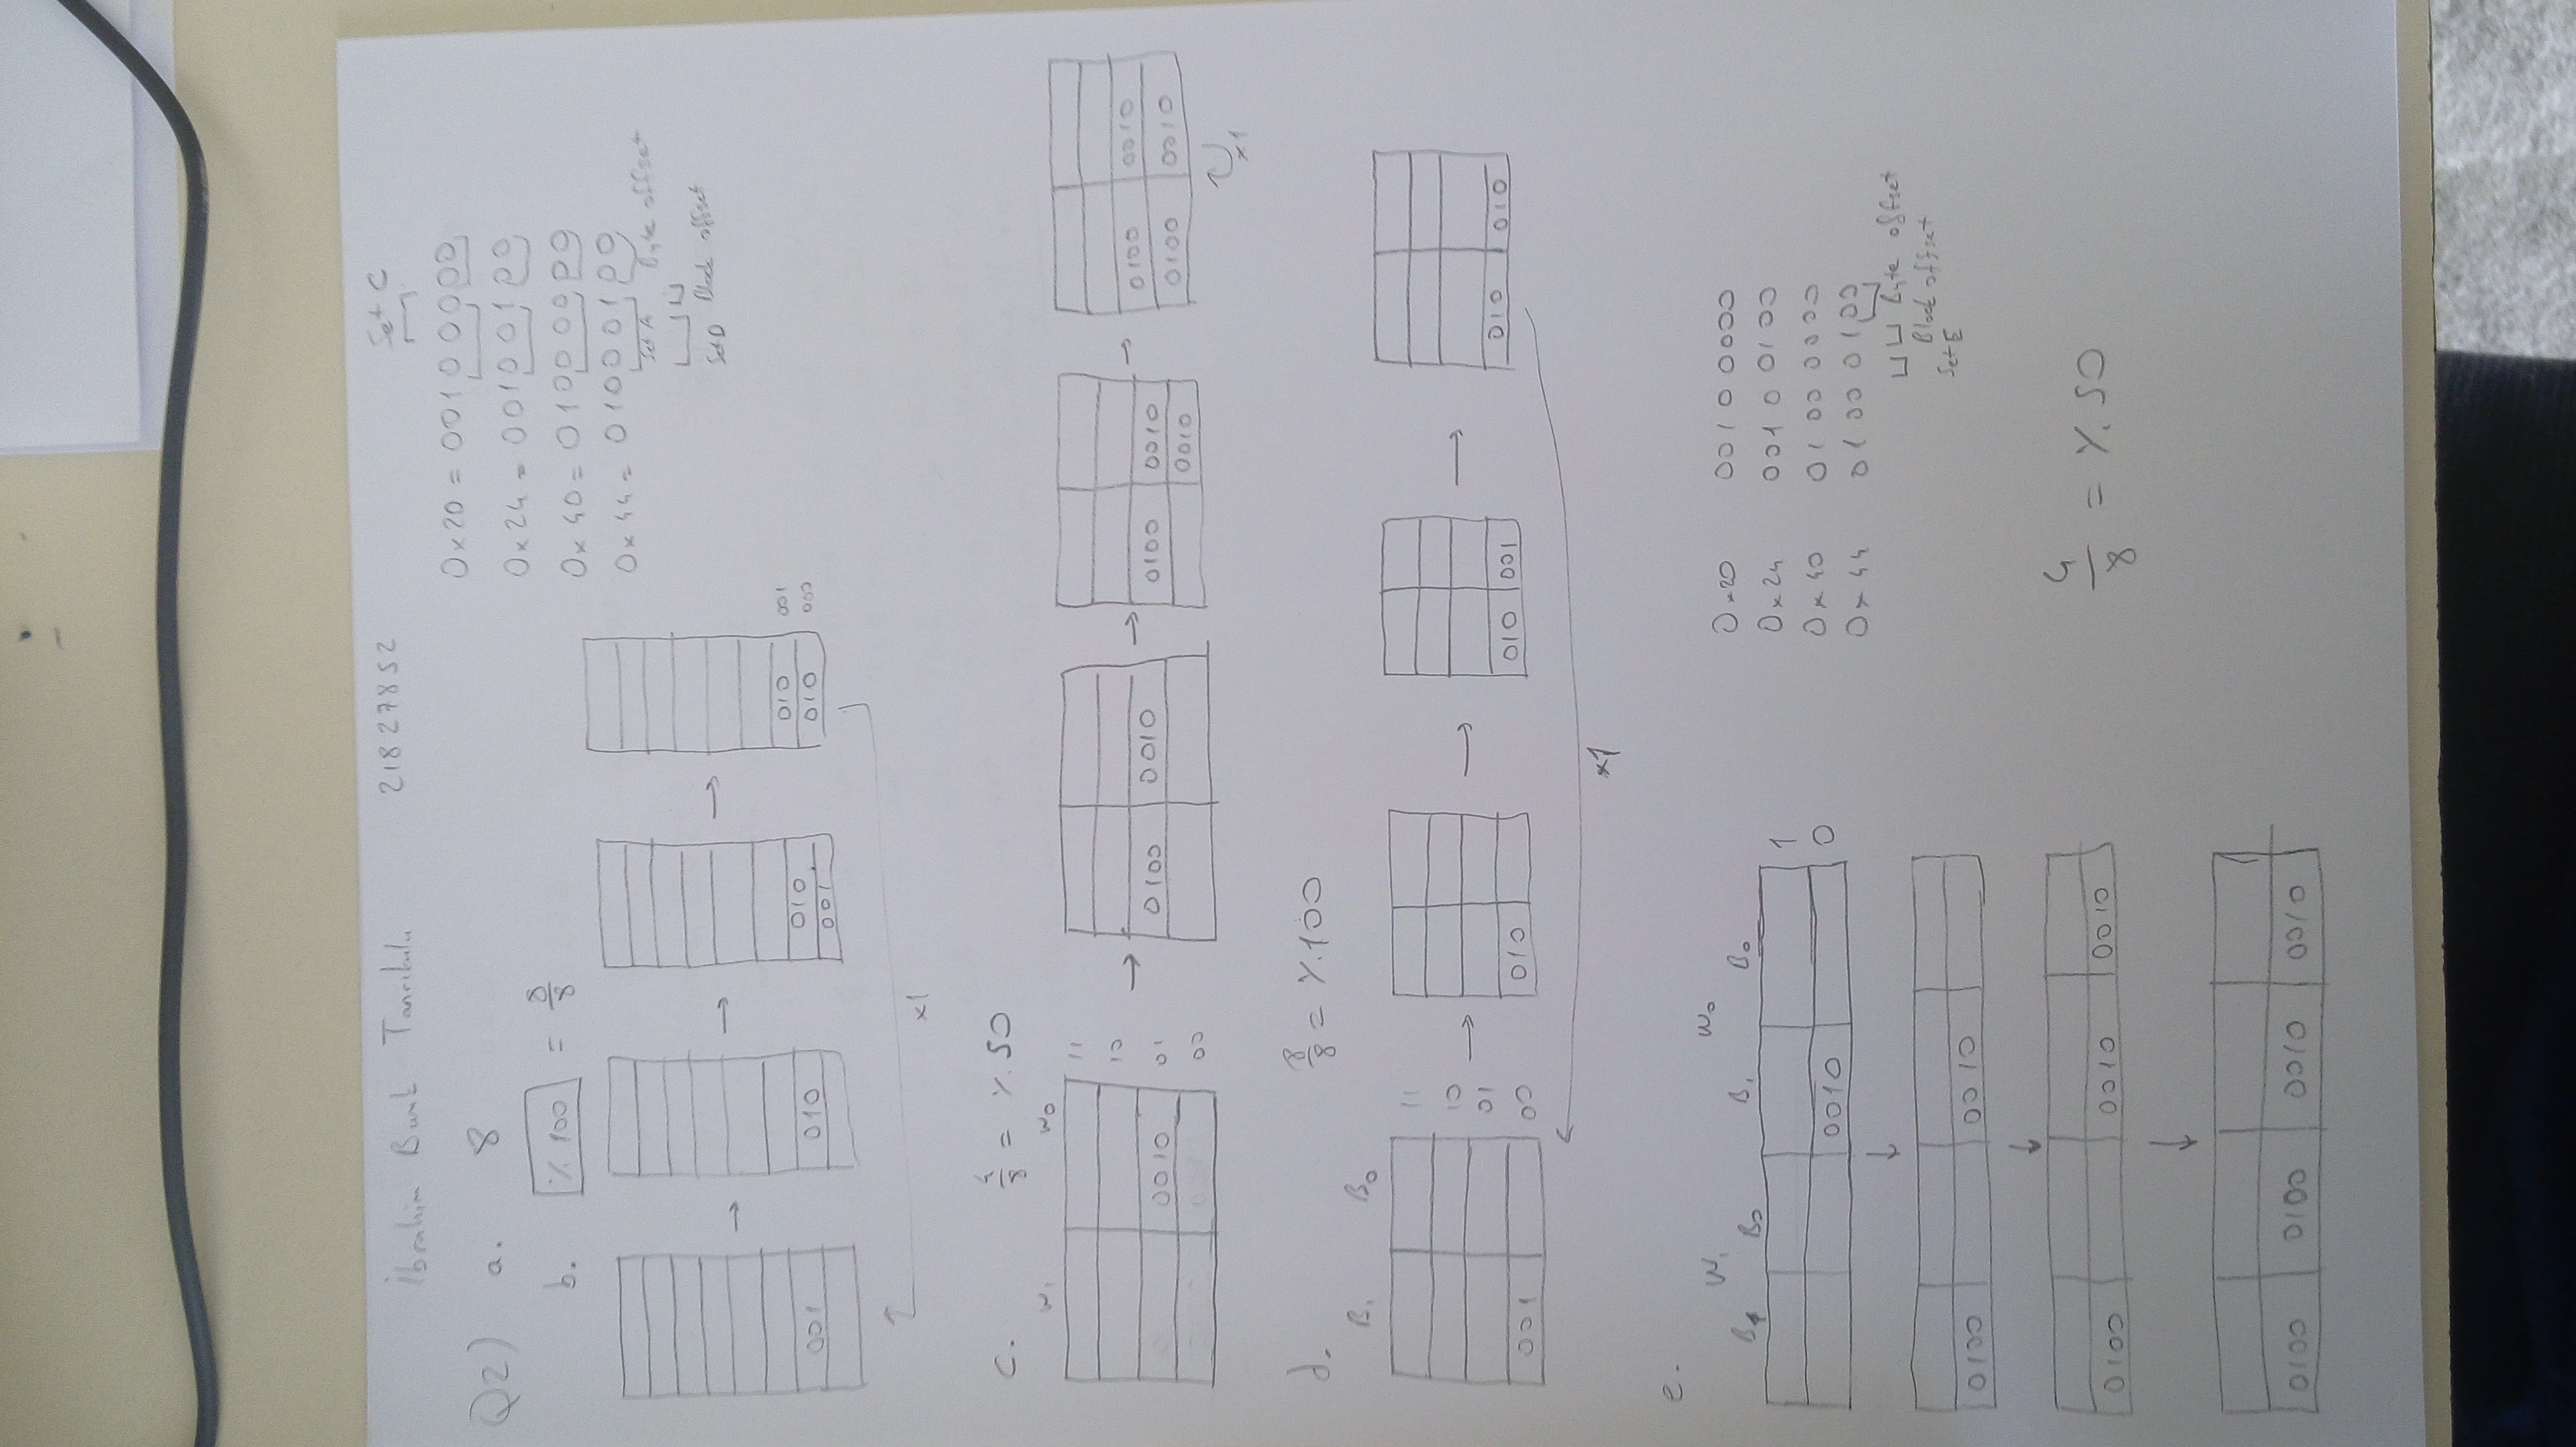 İbrahim Burak Tanrıkulu 21827852
Set C
0x20 = 00100000
Q2) a. 8
0x24 = 00100100
b. %100 = 8/8
0x40 = 01000000
0x44 = 01000100
Set A Byte offset
Set D Block offset
001
010
010
001
010 001
010 000
x1
c. 4/8 = %50
W1 W0
11
10
0010 01
00
0100 0010
0100 0010
0010
0100 0010
0100 0010
x1
d. 8/8 = %100
B1 B0
11
10
01
001 00
010
010 001
010 010
x1
e.
W1 W0
B1 B0 B1 B0
1
0010 0
0100 0010
0100 0010 0010
0100 0100 0010 0010
0x20 00100000
0x24 00100100
0x40 01000000
0x44 01000100
Byte offset
Block offset
Set E
4/8 = %50